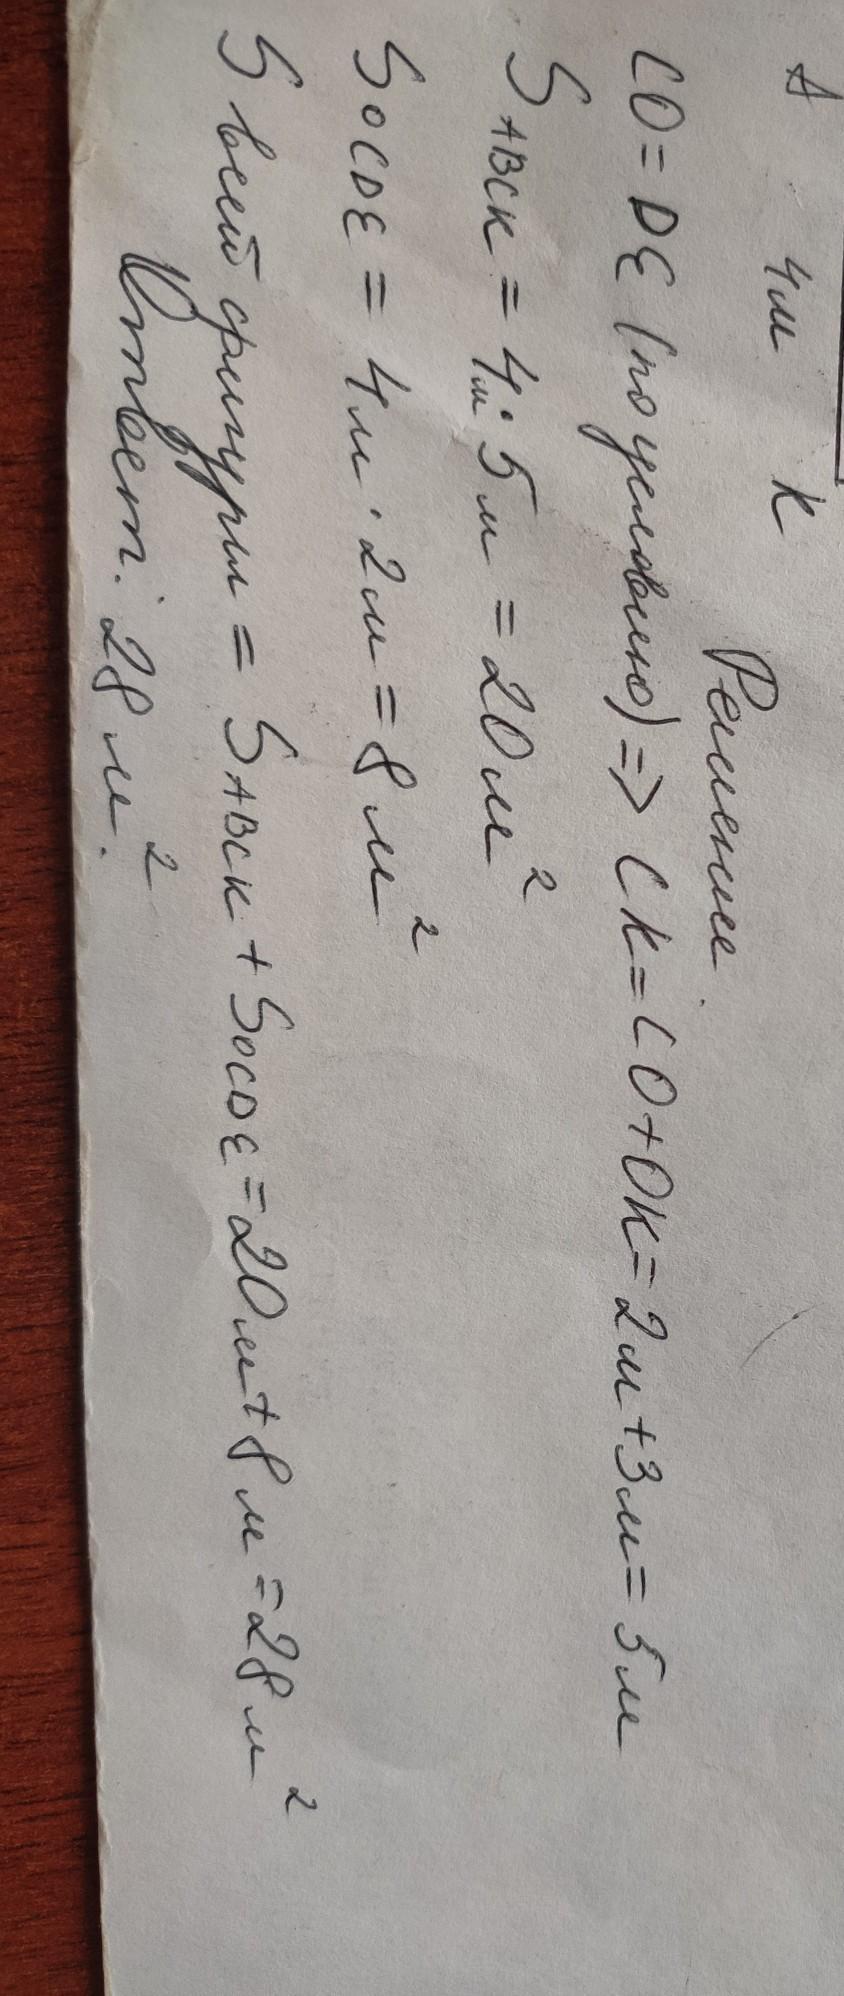 A 4м K
Решение.
CO = DE (по условию) => CK = CO + OK = 2м + 3м = 5м
S ABCK = 4м · 5м = 20м²
S OCDE = 4м · 2м = 8м²
S всей фигуры = S ABCK + S OCDE = 20м + 8м = 28м²
Ответ: 28м².